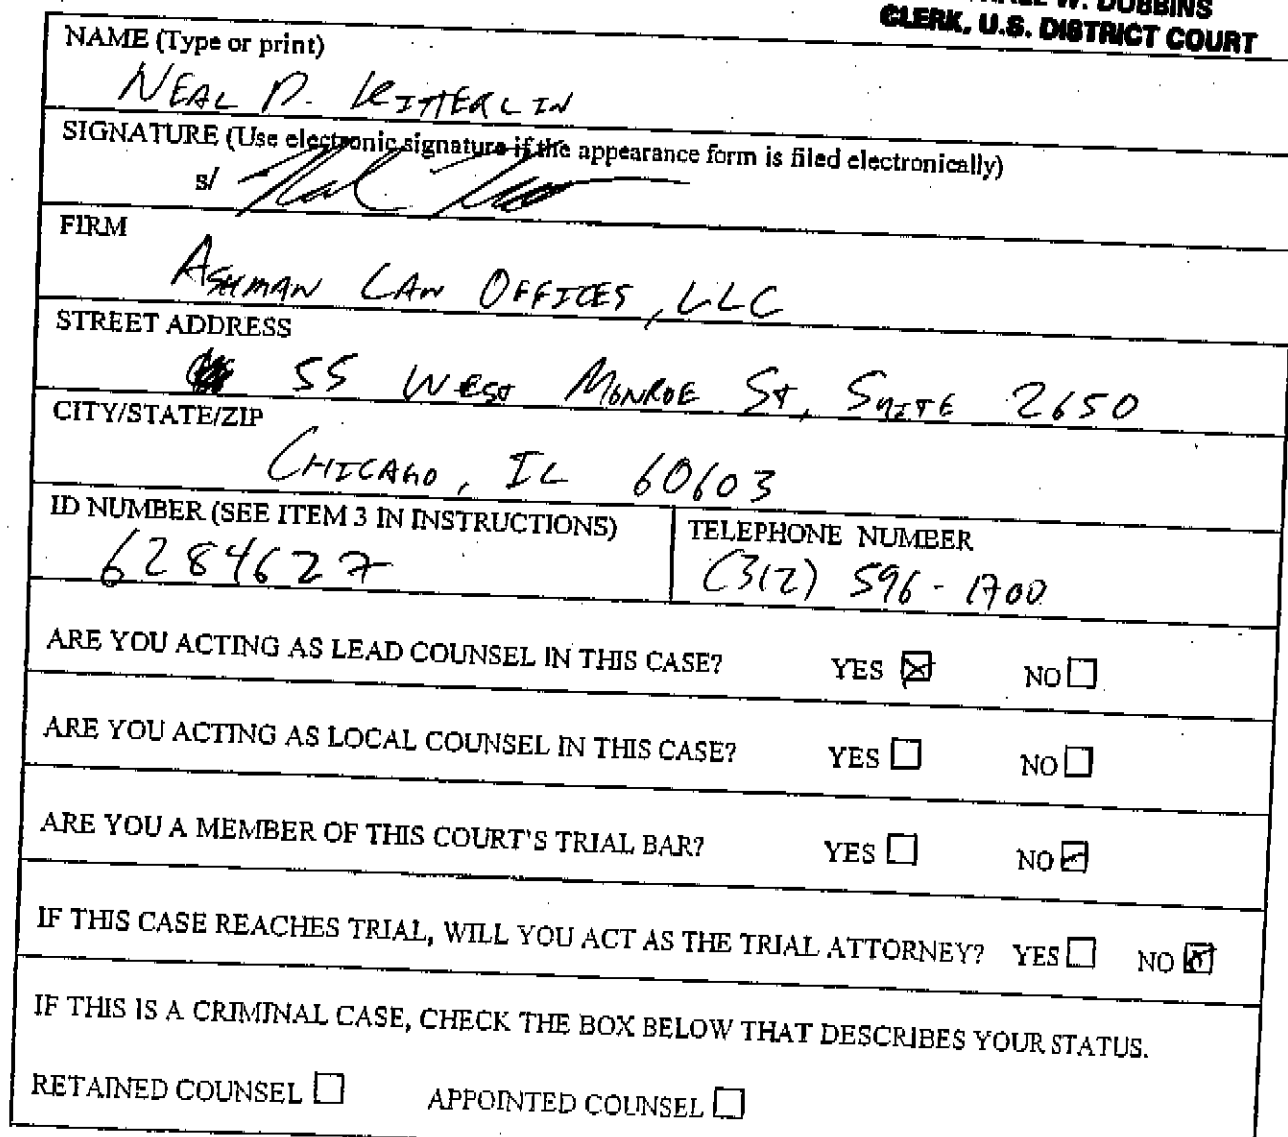 W. DOBBINS
CLERK, U.S. DISTRICT COURT
NAME (Type or print)
NEAL D. KITTERLIN
SIGNATURE (Use electronic signature if the appearance form is filed electronically)
s/
FIRM
ASHMAN LAW OFFICES, LLC
STREET ADDRESS
55 WEST MONROE ST, SUITE 2650
CITY/STATE/ZIP
CHICAGO, IL 60603
ID NUMBER (SEE ITEM 3 IN INSTRUCTIONS)
6284627
TELEPHONE NUMBER
(312) 596-1700
ARE YOU ACTING AS LEAD COUNSEL IN THIS CASE? YES NO
ARE YOU ACTING AS LOCAL COUNSEL IN THIS CASE? YES NO
ARE YOU A MEMBER OF THIS COURT'S TRIAL BAR? YES NO
IF THIS CASE REACHES TRIAL, WILL YOU ACT AS THE TRIAL ATTORNEY? YES NO
IF THIS IS A CRIMINAL CASE, CHECK THE BOX BELOW THAT DESCRIBES YOUR STATUS.
RETAINED COUNSEL APPOINTED COUNSEL